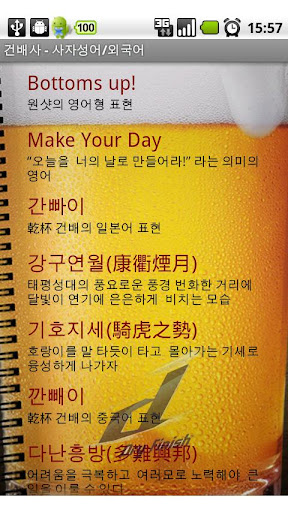 100 3G 15:57
건배사 - 사자성어/외국어
Bottoms up!
원샷의 영어형 표현
Make Your Day
“오늘을 너의 날로 만들어라!” 라는 의미의
영어
간빠이
乾杯 건배의 일본어 표현
강구연월(康衢煙月)
태평성대의 풍요로운 풍경 번화한 거리에
달빛이 연기에 은은하게 비치는 모습
기호지세(騎虎之勢)
호랑이를 말 타듯이 타고 몰아가는 기세로
융성하게 나가자
깐빼이
乾杯 건배의 중국어 표현
Dry Finish
다난흥방(多難興邦)
어려움을 극복하고 여러모로 노력해야 큰
일을 이룰 수 있다